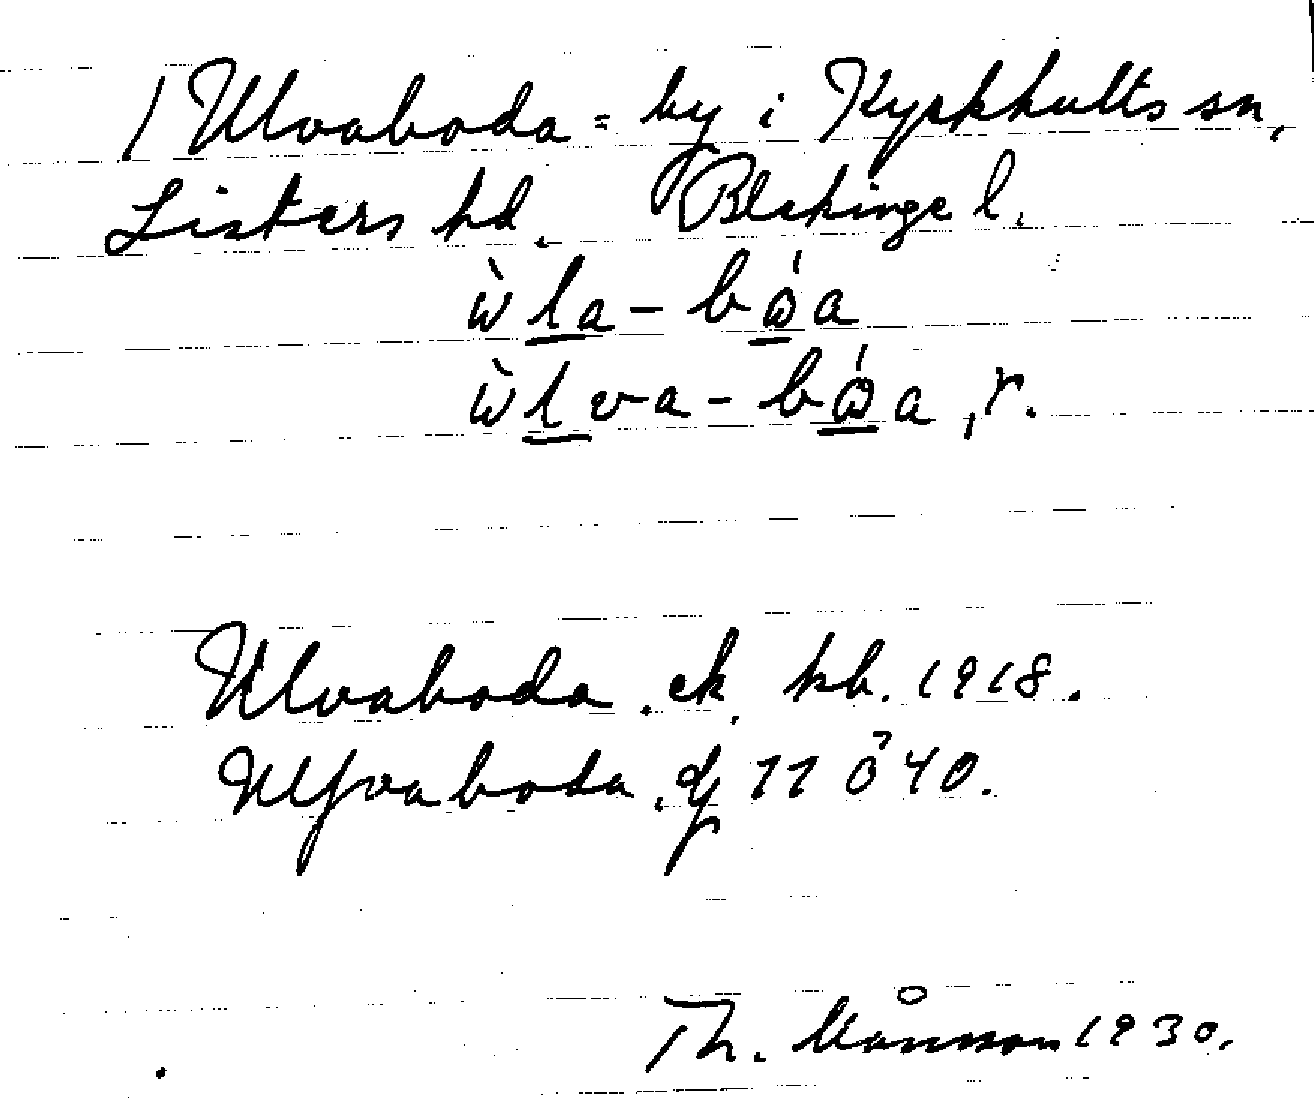 / Ulvaboda = by i Kyrkhults sn,
Listers hd. Blekinge l.
ẁla - bó̵a
ẁlva - bó̵a, r.
Ulvaboda. ek. kb. 1918.
Ulfvaboda. 11 ö 40.
Th. Månsson 1930.